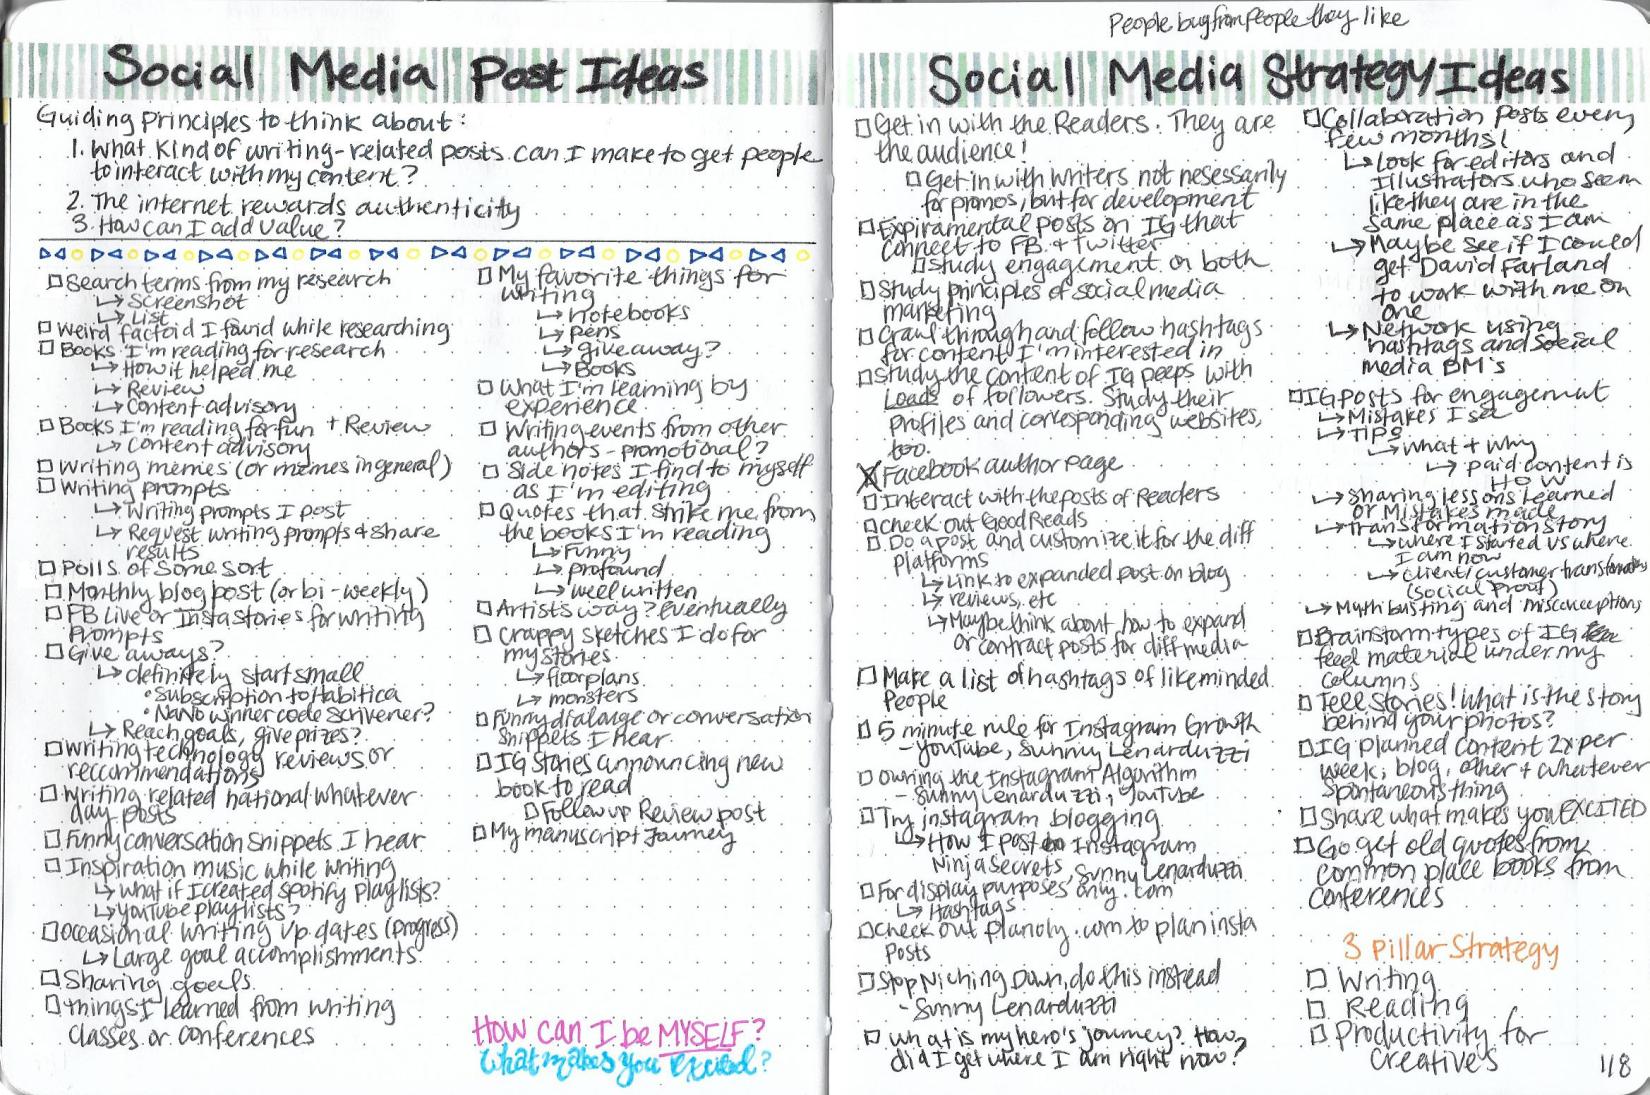 People buy from people they like
Social Media Post Ideas
Guiding Principles to think about:
1. What kind of writing-related posts can I make to get people
to interact with my content?
2. The internet rewards authenticity
3. How can I add value?
Search terms from my research
↳ Screenshot
↳ List
Weird factoid I found while researching
Books I'm reading for research
↳ How it helped me
↳ Review
↳ Content advisory
Books I'm reading for fun + Review
↳ Content advisory
Writing memes (or memes in general)
Writing prompts
↳ Writing prompts I post
↳ Request writing prompts & share
results
Polls of some sort
Monthly blog post (or bi-weekly)
FB Live or Insta Stories for writing
Prompts
Give aways?
↳ definitely start small
• Subscription to Habitica
• NaNo winner code Scrivener?
↳ Reach goals, give prizes?
Writing technology reviews or
reccomendations
Writing related national whatever
day posts
Funny conversation snippets I hear
Inspiration music while writing
↳ What if I created spotify playlists?
↳ YouTube playlists?
Occasional writing updates (progress)
↳ Large goal accomplishments
Sharing goals
things I learned from writing
classes or conferences
My favorite things for
writing
↳ notebooks
↳ pens
↳ give away?
↳ Books
What I'm learning by
experience
Writing events from other
authors - promotional?
Side notes I find to myself
as I'm editing
Quotes that strike me from
the books I'm reading
↳ Funny
↳ profound
↳ well written
Artists way? eventually
Crappy sketches I do for
my stories
↳ floorplans
↳ monsters
Funny dialouge or conversation
snippets I hear
IG stories announcing new
book to read
Follow up Review post
My manuscript Journey
How can I be MYSELF?
What makes you excited?
Social Media Strategy Ideas
Get in with the Readers. They are
the audience!
Get in with writers not nesessarily
for promos, but for development
Expiramental posts on IG that
connect to FB & twitter
Study engagement on both
Study principles of social media
marketing
Crawl through and follow hashtags
for content I'm interested in
Study the content of IG peeps with
Loads of followers. Study their
profiles and corresponding websites,
too.
Facebook author page
Interact with the posts of Readers
Check out GoodReads
Do a post and customize it for the diff
platforms
↳ Link to expanded post on blog
↳ reviews, etc
↳ Maybe think about how to expand
or contract posts for diff media
Make a list of hashtags of likeminded
People
5 minute rule for Instagram Growth
- YouTube, Sunny Lenarduzzi
Owning the Instagram Algorithm
- Sunny Lenarduzzi, YouTube
Try instagram blogging
↳ How I post on Instagram
Ninja Secrets, Sunny Lenarduzzi
For display purposes only.com
↳ Hashtags
Check out planoly.com to plan insta
Posts
Stop Niching Down, do this instead
- Sunny Lenarduzzi
What is my hero's journey? How
did I get where I am right now?
Collaboration Posts every
few months!
↳ Look for editors and
Illustrators who seem
like they are in the
same place as I am
↳ Maybe see if I could
get David Farland
to work with me on
one
↳ Network using
hashtags and Social
media DM's
IG posts for engagement
↳ Mistakes I see
↳ Tips
↳ What + Why
↳ paid content is
HOW
↳ Sharing lessons learned
or Mistakes made
↳ Transformation Story
↳ where I started vs where
I am now
↳ client/customer transformations
(social proof)
↳ Myth busting and misconceptions
Brainstorm types of IG
feed material under my
columns
Tell Stories! What is the story
behind your photos?
IG planned content 2x per
week, blog, other + whatever
spontaneous thing
Share what makes you EXCITED
Go get old quotes from
common place books from
conferences
3 Pillar Strategy
Writing
Reading
Productivity for
Creatives
118